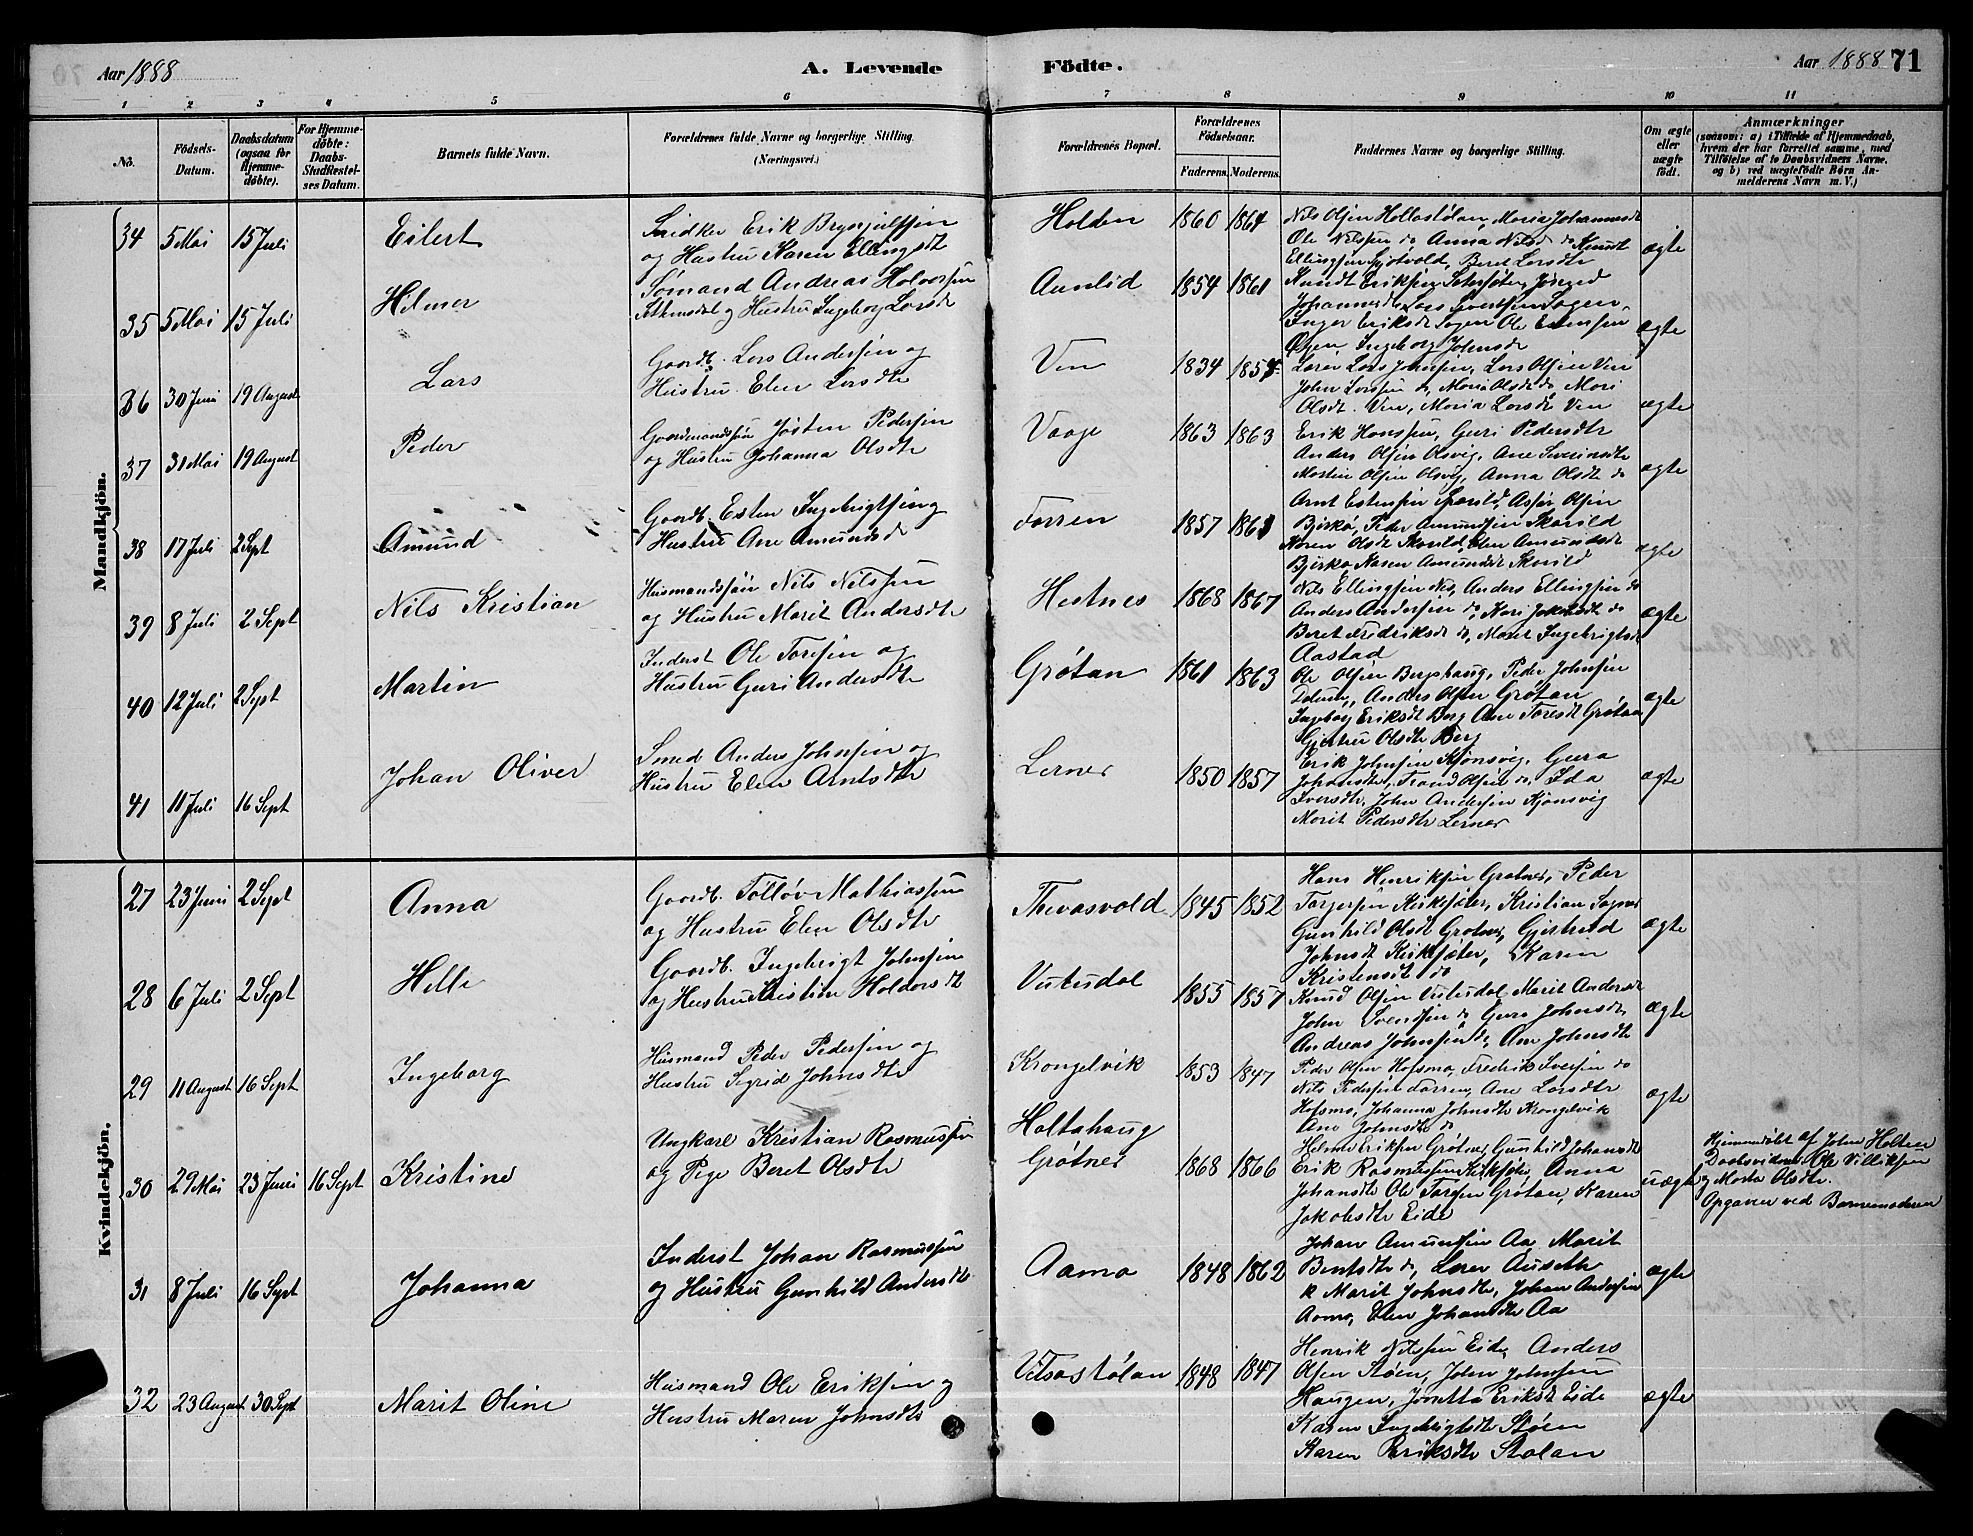 Aar 1888
A. Levende
Födte.
Aar 1888 71
1 2 3 4 5 6 7 8 9 10 11
No.
Födsels-Datum.
Daabsdatum (ogsaa for Hjemme-döbte).
For Hjemme-döbte: Daabs-Stadfæstel-ses Datum.
Barnets fulde Navn.
Forældrenes fulde Navne og borgerlige Stilling. (Næringsvei.)
Forældrenes Bopæl.
Forældrenes Födselsaar.
Faderens. Moderens.
Faddernes Navne og borgerlige Stilling.
Om ægte eller uægte födt.
Anmærkninger
(saasom: a) i Tilfælde af Hjemmedaab,
hvem der har forrettet samme, med
Tilföielse af to Daabsvidners Navne,
og b) ved uægtefödte Börn An-
melderens Navn m. V.)
Mandkjön.
34 5 Mai 15 Juli Eilert
Snidker Erik
og Hustru Karen Ellingsdt
Holden 1860 1864
Nils Olsen Hollastølan, Maria Johannesdt
Ole Nilssen do Anna Nilsd do Knudt
Ellingsen Sjøtvold, Beret Larsdtr
ægte
35 5 Mai 15 Juli Hilmer
Sømand Andreas Holversen
og Hustru Ingeborg Larsdt
Aunlid 1854 1861
Knudt Eriksen
Johannesdt Lars Sivertsen Sagen,
Inger Eriksdt Sagen Ole Estensen
Ingeborg Johnsdr
ægte
36 30 Juni 19 August Lars
Gaardb. Lars Andersen og
Hustru Elen Larsdtr
Ven 1834
Lars Johnsen, Lars Olsen Ven
John Larssen do, Maria Olsdt do, Mari
Olsdt. Ven, Maria Larsdt Ven
ægte
37 31 Mai 19 August Peder
Gaardmandssøn Josten Pedersen
og Hustru Johanna Olsdtr
Vaage 1863 1863
Erik Hanssen, Guri Pedersdtr
Anders Olsen Olsvig, Ane Iverinsdtr
Martin Olsen Olsvig, Anna Olsdt do
ægte
38 17 Juli 2 Sept Amund
Gaardb. Esten Ingebrigtsen og
Hustru Ane Amundsd
Forren 1857 1861
Arnt Estensen Skarild, Olsen
Bjørkø, Peder Amundsen Skarild
Karen Olsdt Skarild, Elen Amundsdt
Bjørkø, Karen Amundsdt Skarild
ægte
39 8 Juli 2 Sept Nils Kristian
Husmandssøn Nils Nilssen
og Hustru Marit Andersdtr
Hestnes 1868 1867
Nils Ellingsen Nes, Anders Ellingsen do
Anders Andersen do, Kari Jakobsdt do
Beret Fredriksdt do, Marit Ingebrigtsdt
Aastad
ægte
40 12 Juli 2 Sept Martin
Inderst Ole Toresen og
Hustru Guri Andersdtr
Grøtan 1861 1863
Ole Olsen Berghaug, Peder Johnsen
Anders Olsen Grøtan
Ingeborg Eriksdt Berg Ane Toresdt Grøtan
Gjertru Olsdtr Berg
ægte
41 11 Juli 16 Sept Johan Oliver
Smed Anders Johnsen og
Hustru Elen Arntsdtr
Lernes 1850 1857
Erik Johnsen Kjønsvig, Guru
Johansdtr, Trond Olsen do, Ida
Iversdtr, John Andersen Kjønsvig
Marit Pedersdtr Lernes
ægte
Kvindekjön.
27 23 Juni 2 Sept Anna
Gaardb. Tolløv Mathiassen
og Hustru Elen Olsdtr
Thevasvold 1845 1852
Hans Henriksen Grøtnes, Peder
Torgersen Kirksæter, Kristian Sognes
Gunhild Olsdt Grøtnes, Gjertrud
Johnsdt Kirksæter, Karen
Kristensdt do
ægte
28 6 Juli 2 Sept Helle
Gaardb. Ingebrigt Johnsen
og Hustru Kristine Holdorsdt
Vutudal 1855 1857
Knud Olsen Vutudal Marit Andersdt
John Svendsen do Guru Johnsdt,
Andreas Johnsen do, Ane Johnsdtr
ægte
29 11 August 16 Sept Ingeborg
Husmand Peder Pedersen og
Hustru Sigrid Johnsdtr
Krongelvik 1853 1847
Peder Olsen Hofsmo, Fredrik Iversen do
Nils Pedersen Forren, Ane Larsdtr
Hofsmo, Johanna Johnsdtr Krongelvik
Ane Johnsdtr do
ægte
30 29 Mai 23 Juni 16 Sept Kristine
Ungkarl Kristian Rasmussen
og Pige Beret Olsdtr
Holtahaug
Grøtnes 1868 1866
Eriksen Grøtnes, Gunhild Johansdt
Erik Rasmussen Kirksæter Anna
Johansdtr Ole Toresen Grøtan, Karen
Jakobsdtr Eide
uægte
Hjemmedøbt af John Holten
Daabsvidner: Ole Villiksen
og Marta Olsdtr.
Opgaven ved Barnemoderen
31 8 Juli 16 Sept Johanna
Inderst Johan Rasmussen
og Hustru Gunhild Andersdtr
Aamo 1848 1862
Johan Amundsen Aa, Marit
Bentsdtr do, Auseth
k Marit Johnsdtr, Johan Andersen
Aamo, Elen Johansdtr Aa
ægte
32 23 August 30 Sept Marit Oline
Husmand Ole Eriksen og
Hustru Maren Johnsdtr
Vitsostølan 1848 1847
Henrik Nilssen Eide, Anders
Olsen Støen, John Johnsen
Haugen, Jonetta Eriksdt Eide
Karen Ingebrigtsdtr Støen
Karen Eriksdtr Stølan
ægte